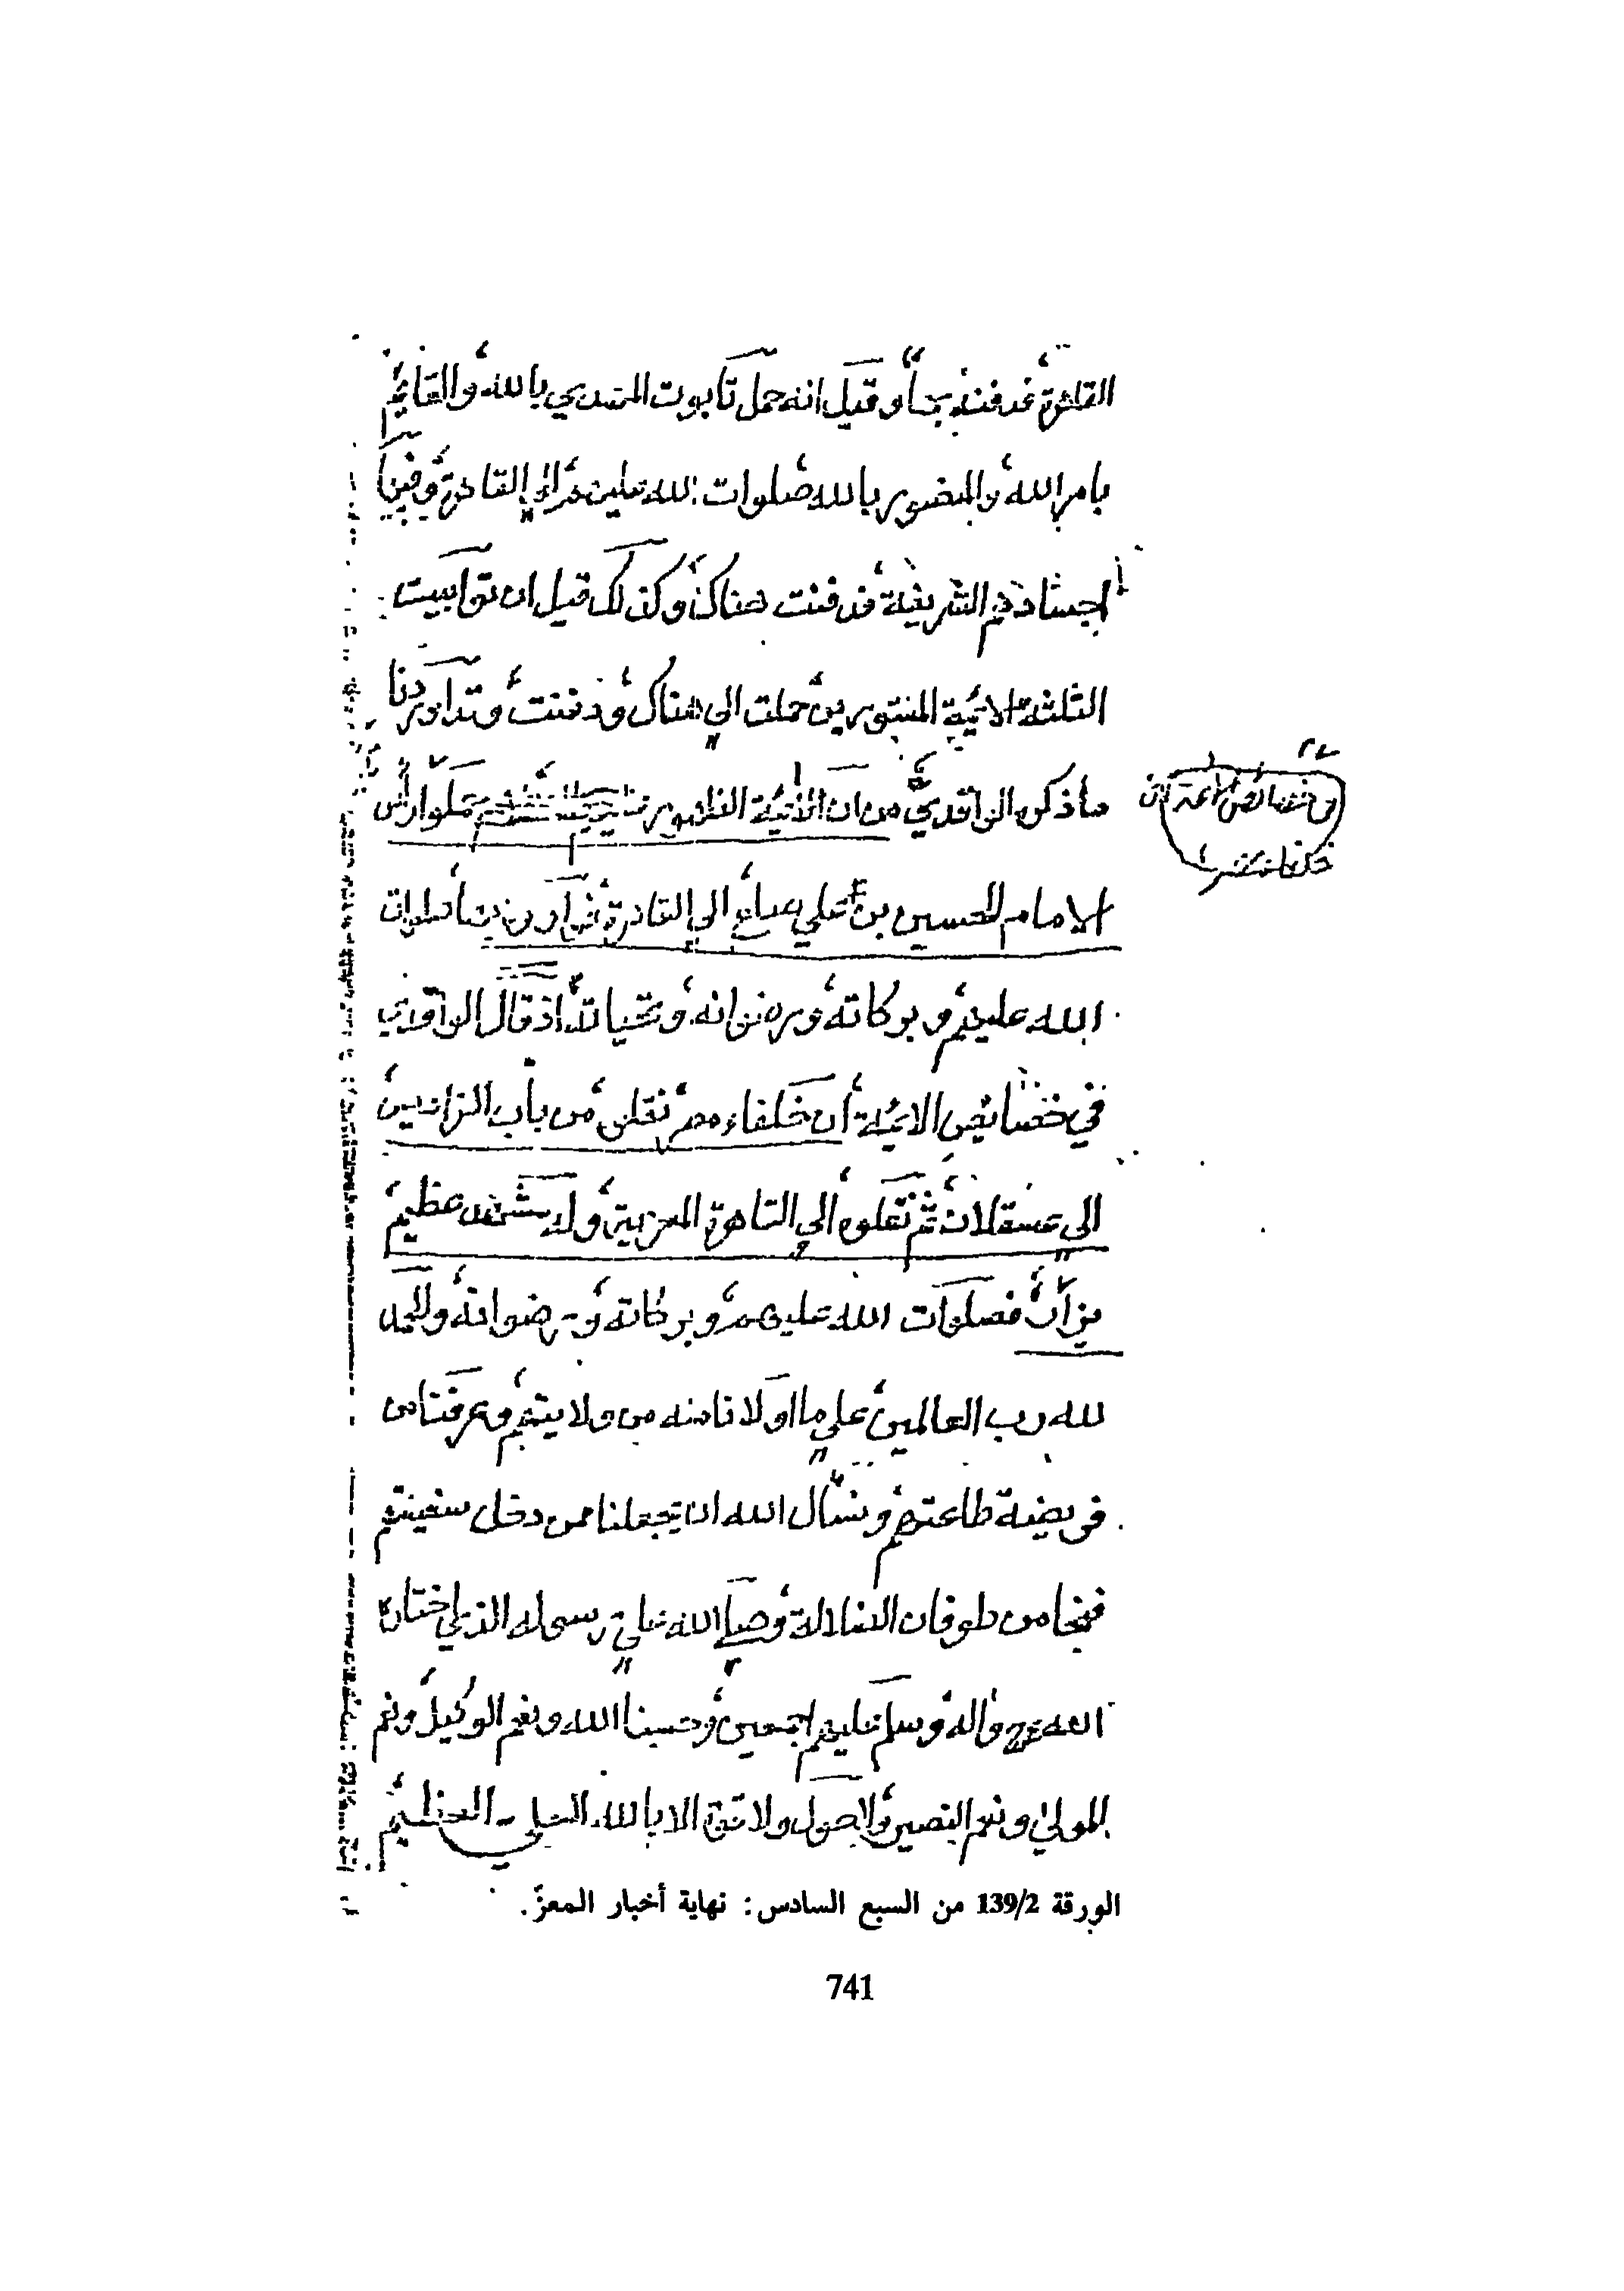 القاهرة فدفنه بها وقيل انه حمل تابوت المهدي بالله والقايم
بامر الله والمنصور بالله صلوات الله عليهم الى القاهرة وفيها
اجسادهم الشريفة فدفنت هناك وكذلك قيل ان توابيت
الثلثة الائمة المستورين حملت الي هناك ودفنت وقد اوردنا
ما ذكره الواقدي من ان الائمة الظاهرين حملوا راس
الامام الحسين بن علي الي القاهرة صلوات
الله عليهم وبركاته ورضوانه وتحياته اذ قال الواقدي
في خصايص الائمة ان خلفاء مصر نقلوه من باب الفراديس
الي عسقلان ثم نقلوه الي القاهرة المعزية وله مشهد عظيم
يزار فصلوات الله عليهم وبركاته ورضوانه والحمد
لله رب العالمين علي ما اولانا منه من ولايتهم وعرفنا من
فريضة طاعتهم ونسأل الله ان يجعلنا ممن دخل سفينتهم
فنجا من طوفان الضلالة وصلي الله علي رسوله الذي اختاره
الله محمد واله وسلم عليهم اجمعين وحسبنا الله ونعم الوكيل ونعم
المولي ونعم النصير ولا حول ولا قوة الا بالله العلي العظيم
في خصائص الائمة ان
خلفاء مصر
الورقة 139/2 من السبع السادس: نهاية أخبار المعزّ.
741